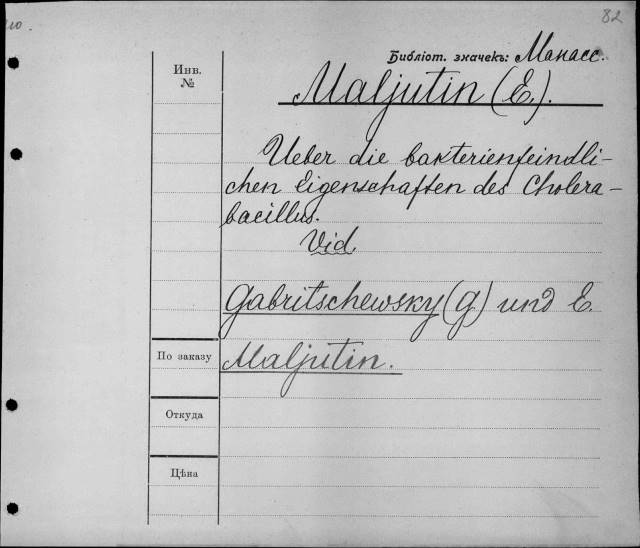 82
Библіот. значекъ: Манасс.
Инв.
№
Maljutin (E.).
Ueber die bakterienfeindli-
chen Eigenschaften des Cholera-
bacillus.
Vid
Gabritschewsky (G) und E.
По заказу
Maljutin.
Откуда
Цѣна